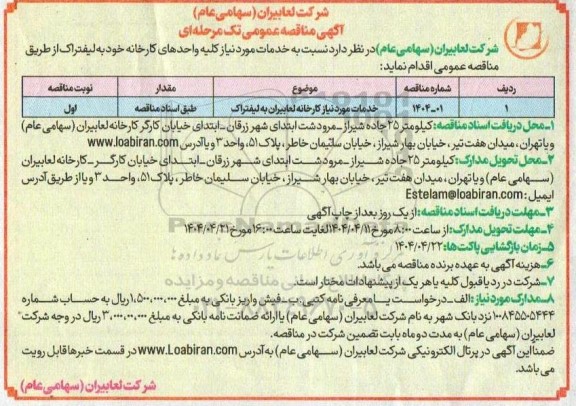 شرکت لعابیران (سهامی عام)
آگهی مناقصه عمومی تک مرحله‌ای
شرکت لعابیران (سهامی عام) در نظر دارد نسبت به خدمات مورد نیاز کلیه واحدهای کارخانه خود به لیفتراک از طریق
مناقصه عمومی اقدام نماید:
ردیف شماره مناقصه موضوع مقدار نوبت مناقصه
۱ ۱۴۰۴-۰۱ خدمات مورد نیاز کارخانه لعابیران به لیفتراک طبق اسناد مناقصه اول
۱-محل دریافت اسناد مناقصه: کیلومتر ۲۵ جاده شیراز-مرودشت ابتدای شهر زرقان-ابتدای خیابان کارگر کارخانه لعابیران (سهامی عام)
و یا تهران، میدان هفت تیر، خیابان بهار شیراز، خیابان سلیمان خاطر، پلاک ۵۱، واحد ۳ و یا آدرس www.loabiran.com
۲-محل تحویل مدارک: کیلومتر ۲۵ جاده شیراز-مرودشت ابتدای شهر زرقان-ابتدای خیابان کارگر-کارخانه لعابیران
(سهامی عام) و یا تهران، میدان هفت تیر، خیابان بهار شیراز، خیابان سلیمان خاطر، پلاک ۵۱، واحد ۳ و یا از طریق آدرس
ایمیل: Estelam@loabiran.com
۳-مهلت دریافت اسناد مناقصه: از یک روز بعد از چاپ آگهی
۴-مهلت تحویل مدارک: از ساعت ۸:۰۰ مورخ ۱۴۰۴/۰۴/۱۱ لغایت ساعت ۱۶:۰۰ مورخ ۱۴۰۴/۰۴/۲۱
۵-زمان بازگشایی پاکت‌ها: ۱۴۰۴/۰۴/۲۲
۶-هزینه آگهی به عهده برنده مناقصه می‌باشد.
۷-شرکت در رد یا قبول کلیه یا هر یک از پیشنهادات مختار است.
۸-مدارک مورد نیاز: الف-درخواست یا معرفی نامه کتبی ب-فیش واریز بانکی به مبلغ ۱,۵۰۰,۰۰۰,۰۰۰ ریال به حساب شماره
۱۰۰۸۴۵۵۰۵۴۴۴ نزد بانک شهر به نام شرکت لعابیران (سهامی عام) یا ارائه ضمانت نامه بانکی به مبلغ ۳,۰۰۰,۰۰۰,۰۰۰ ریال در وجه شرکت
لعابیران (سهامی عام) به مدت دو ماه بابت تضمین شرکت در مناقصه.
ضمنا این آگهی در پرتال الکترونیکی شرکت لعابیران (سهامی عام) به آدرس www.Loabiran.com در قسمت خبرها قابل رویت
می باشد.
شرکت لعابیران (سهامی عام)